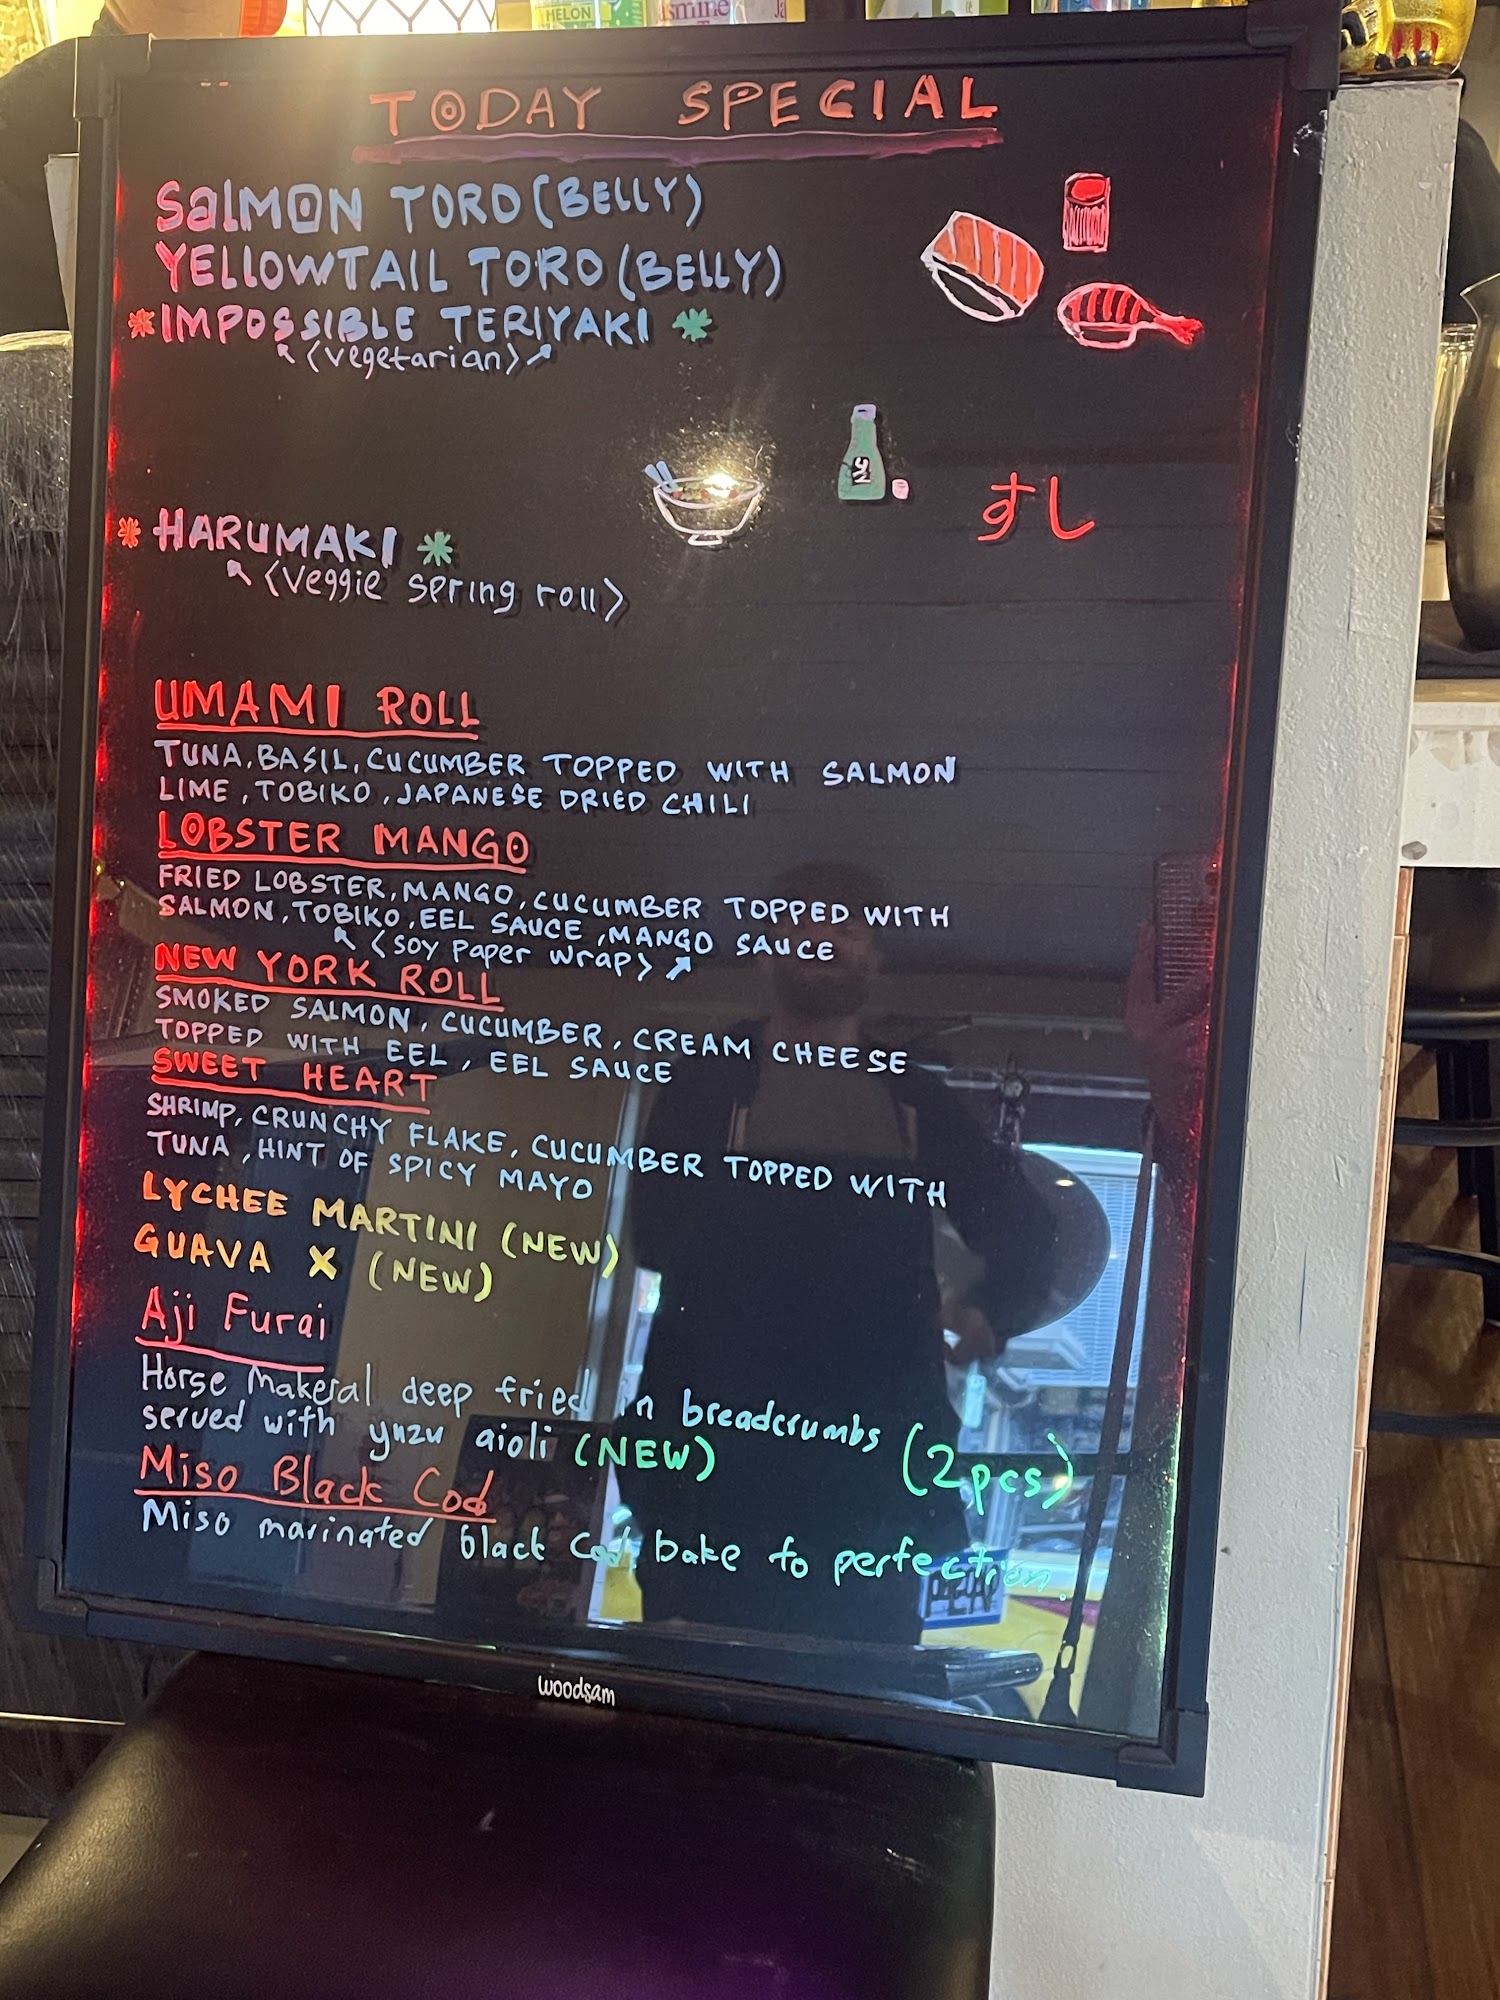 MELON
asmine
TODAY SPECIAL
SalMON TORO (BELLY)
YELLOWTAIL TORO (BELLY)
*IMPOSSIBLE TERIYAKI *
<vegetarian>
すし
*HARUMAKI *
<veggie spring roll>
UMAMI ROLL
TUNA, BASIL, CUCUMBER TOPPED WITH SALMON
LIME, TOBIKO, JAPANESE DRIED CHILI
LOBSTER MANGO
FRIED LOBSTER, MANGO, CUCUMBER TOPPED WITH
SALMON, TOBIKO, EEL SAUCE, MANGO SAUCE
<soy paper wrap>
NEW YORK ROLL
SMOKED SALMON, CUCUMBER, CREAM CHEESE
TOPPED WITH EEL, EEL SAUCE
SWEET HEART
SHRIMP, CRUNCHY FLAKE, CUCUMBER TOPPED WITH
TUNA, HINT OF SPICY MAYO
LYCHEE MARTINI (NEW)
GUAVA X (NEW)
Aji Furai
Horse Makeral deep fried in breadcrumbs (2pcs)
served with yuzu aioli (NEW)
Miso Black Cod
Miso marinated black cod bake to perfection.
woodsam